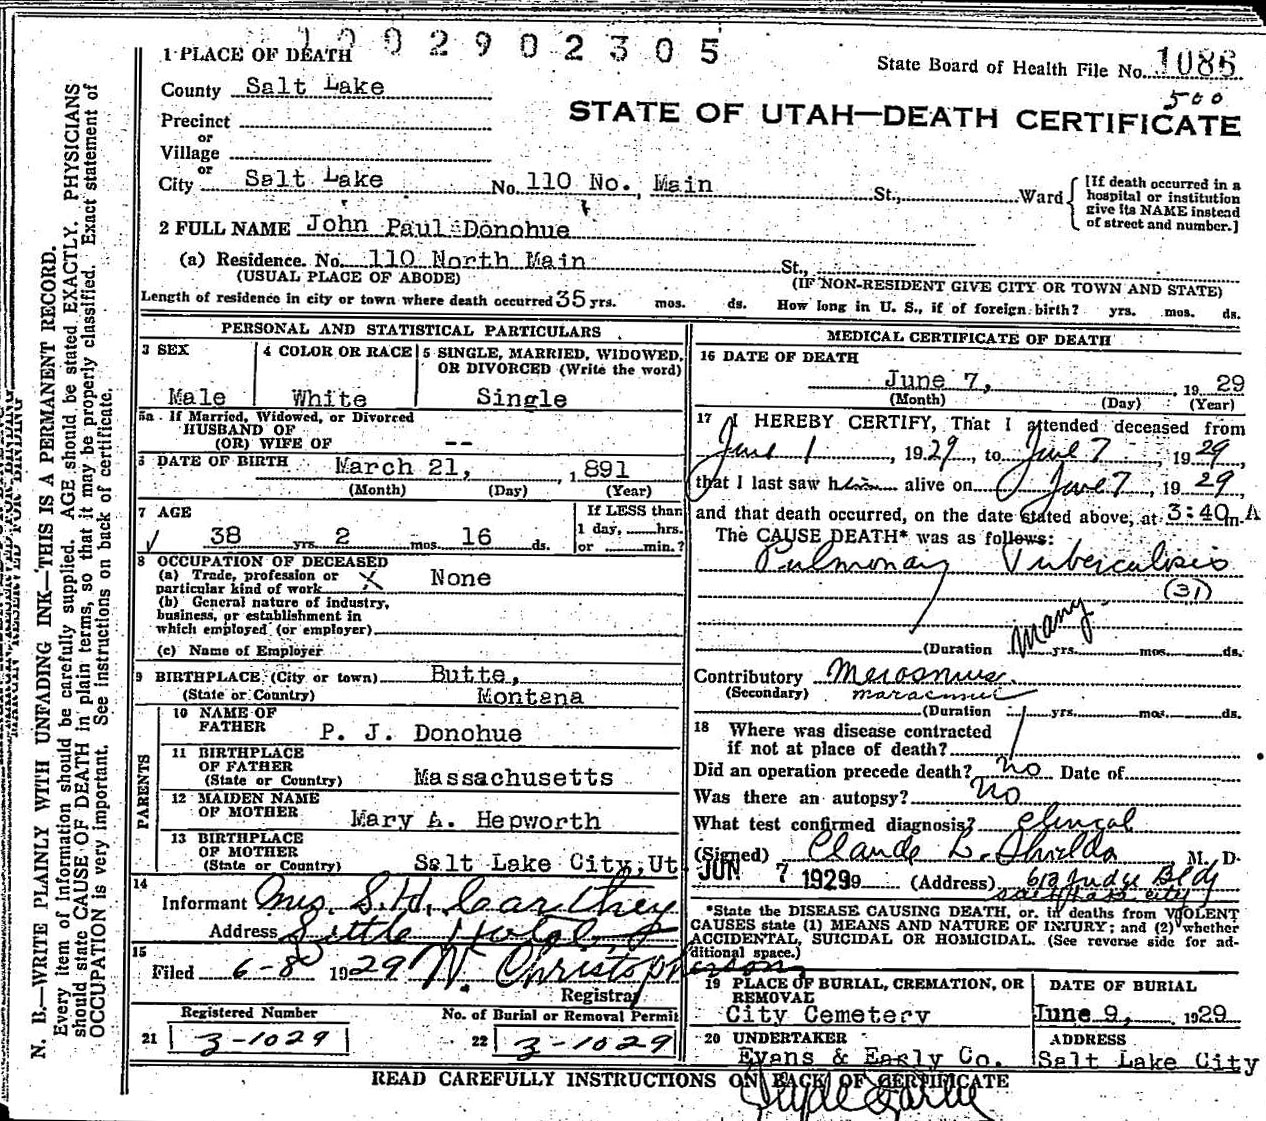 1 0 0 2 9 0 2 3 0 5
1 PLACE OF DEATH
State Board of Health File No. 1086
500
County Salt Lake
STATE OF UTAH—DEATH CERTIFICATE
Precinct
or
Village
or
City Salt Lake No. 110 No. Main St., Ward
[If death occurred in a hospital or institution give its NAME instead of street and number.]
2 FULL NAME John Paul Donohue
(a) Residence. No. 110 North Main St.,
(USUAL PLACE OF ABODE) (IF NON-RESIDENT GIVE CITY OR TOWN AND STATE)
Length of residence in city or town where death occurred 35 yrs. mos. ds. How long in U. S., if of foreign birth? yrs. mos. ds.
PERSONAL AND STATISTICAL PARTICULARS
3 SEX
Male
4 COLOR OR RACE
White
5 SINGLE, MARRIED, WIDOWED,
OR DIVORCED (Write the word)
Single
5a If Married, Widowed, or Divorced
HUSBAND OF
(OR) WIFE OF --
6 DATE OF BIRTH March 21, , 1891
(Month) (Day) (Year)
7 AGE
38 yrs. 2 mos. 16 ds.
If LESS than
1 day, hrs.
or min.?
8 OCCUPATION OF DECEASED
(a) Trade, profession or
particular kind of work X None
(b) General nature of industry,
business, or establishment in
which employed (or employer)
(c) Name of Employer
9 BIRTHPLACE (City or town) Butte,
(State or Country) Montana
PARENTS
10 NAME OF
FATHER P. J. Donohue
11 BIRTHPLACE
OF FATHER
(State or Country) Massachusetts
12 MAIDEN NAME
OF MOTHER Mary A. Hepworth
13 BIRTHPLACE
OF MOTHER
(State or Country) Salt Lake City, Ut
14
Informant Mrs. S. H. Carthey
Address Little Hotel
15
Filed 6-8 1929 W. Christopherson
Registrar
Registered Number
21 3-1029
No. of Burial or Removal Permit
22 3-1029
MEDICAL CERTIFICATE OF DEATH
16 DATE OF DEATH
June 7, 1929
(Month) (Day) (Year)
17 I HEREBY CERTIFY, That I attended deceased from
June 1, 1929, to June 7, 1929,
that I last saw him alive on June 7, 1929,
and that death occurred, on the date stated above, at 3:40 m. A
The CAUSE DEATH* was as follows:
Pulmonary Tuberculosis
(31)
(Duration many yrs. mos. ds.
Contributory Merosmus
(Secondary) marasmus
(Duration yrs. mos. ds.
18 Where was disease contracted
if not at place of death?
Did an operation precede death? no Date of
Was there an autopsy? No
What test confirmed diagnosis? clinical
(Signed) Claude L. Shields M. D.
JUN 7 1929 9 (Address) 613 Judge Bldg
Salt Lake City
*State the DISEASE CAUSING DEATH, or, in deaths from VIOLENT
CAUSES state (1) MEANS AND NATURE OF INJURY; and (2) whether
ACCIDENTAL, SUICIDAL OR HOMICIDAL. (See reverse side for ad-
ditional space.)
19 PLACE OF BURIAL, CREMATION, OR
REMOVAL
City Cemetery
DATE OF BURIAL
June 9, 1929
20 UNDERTAKER
Evans & Early Co.
ADDRESS
Salt Lake City
READ CAREFULLY INSTRUCTIONS ON BACK OF CERTIFICATE
MARGIN RESERVED FOR BINDING
N. B.—WRITE PLAINLY WITH UNFADING INK—THIS IS A PERMANENT RECORD.
Every item of information should be carefully supplied. AGE should be stated EXACTLY. PHYSICIANS
should state CAUSE OF DEATH in plain terms, so that it may be properly classified. Exact statement of
OCCUPATION is very important. See instructions on back of certificate.